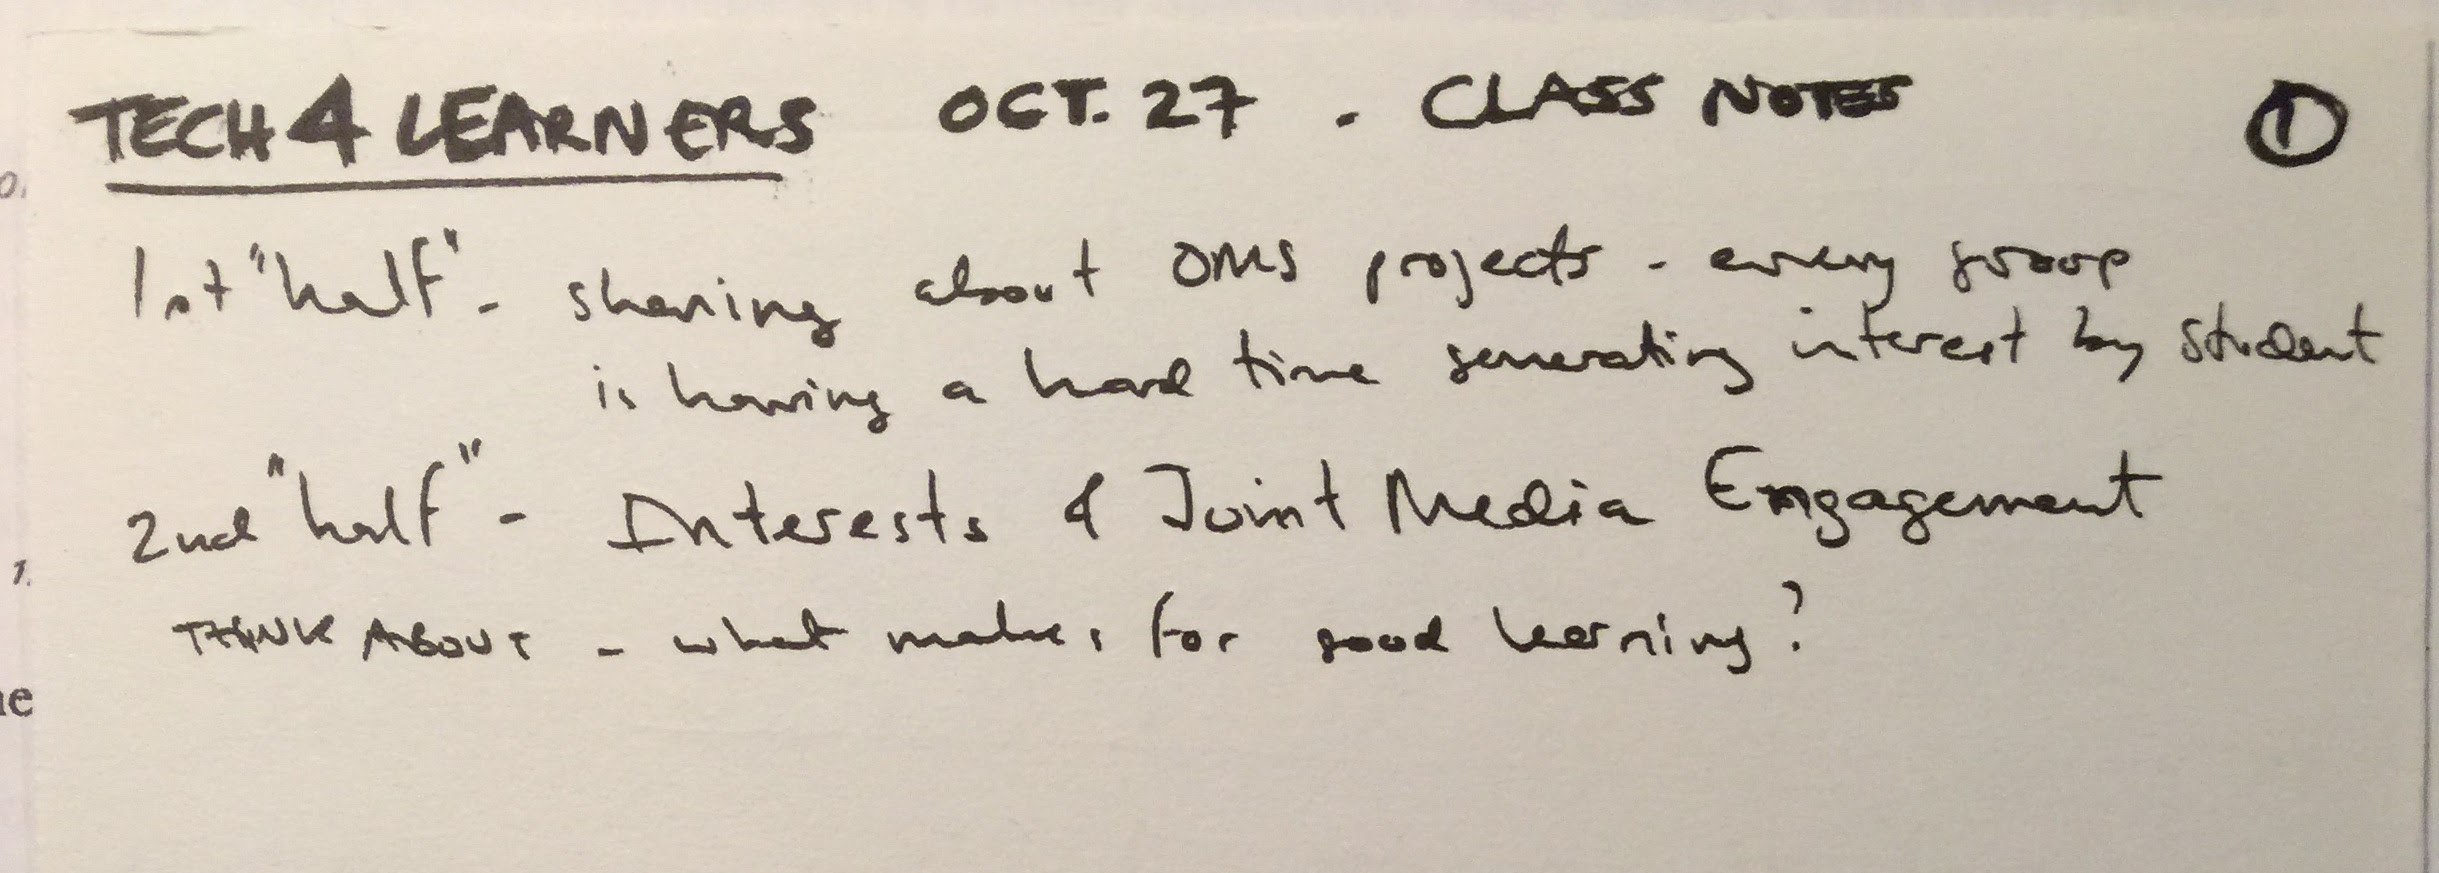 TECH 4 LEARNERS OCT. 27 - CLASS NOTES ①
1st "half" - sharing about OMS projects - every group
is having a hard time generating interest by student
2nd "half" - Interests & Joint Media Engagement
THINK ABOUT - what makes for good learning?
0.
1.